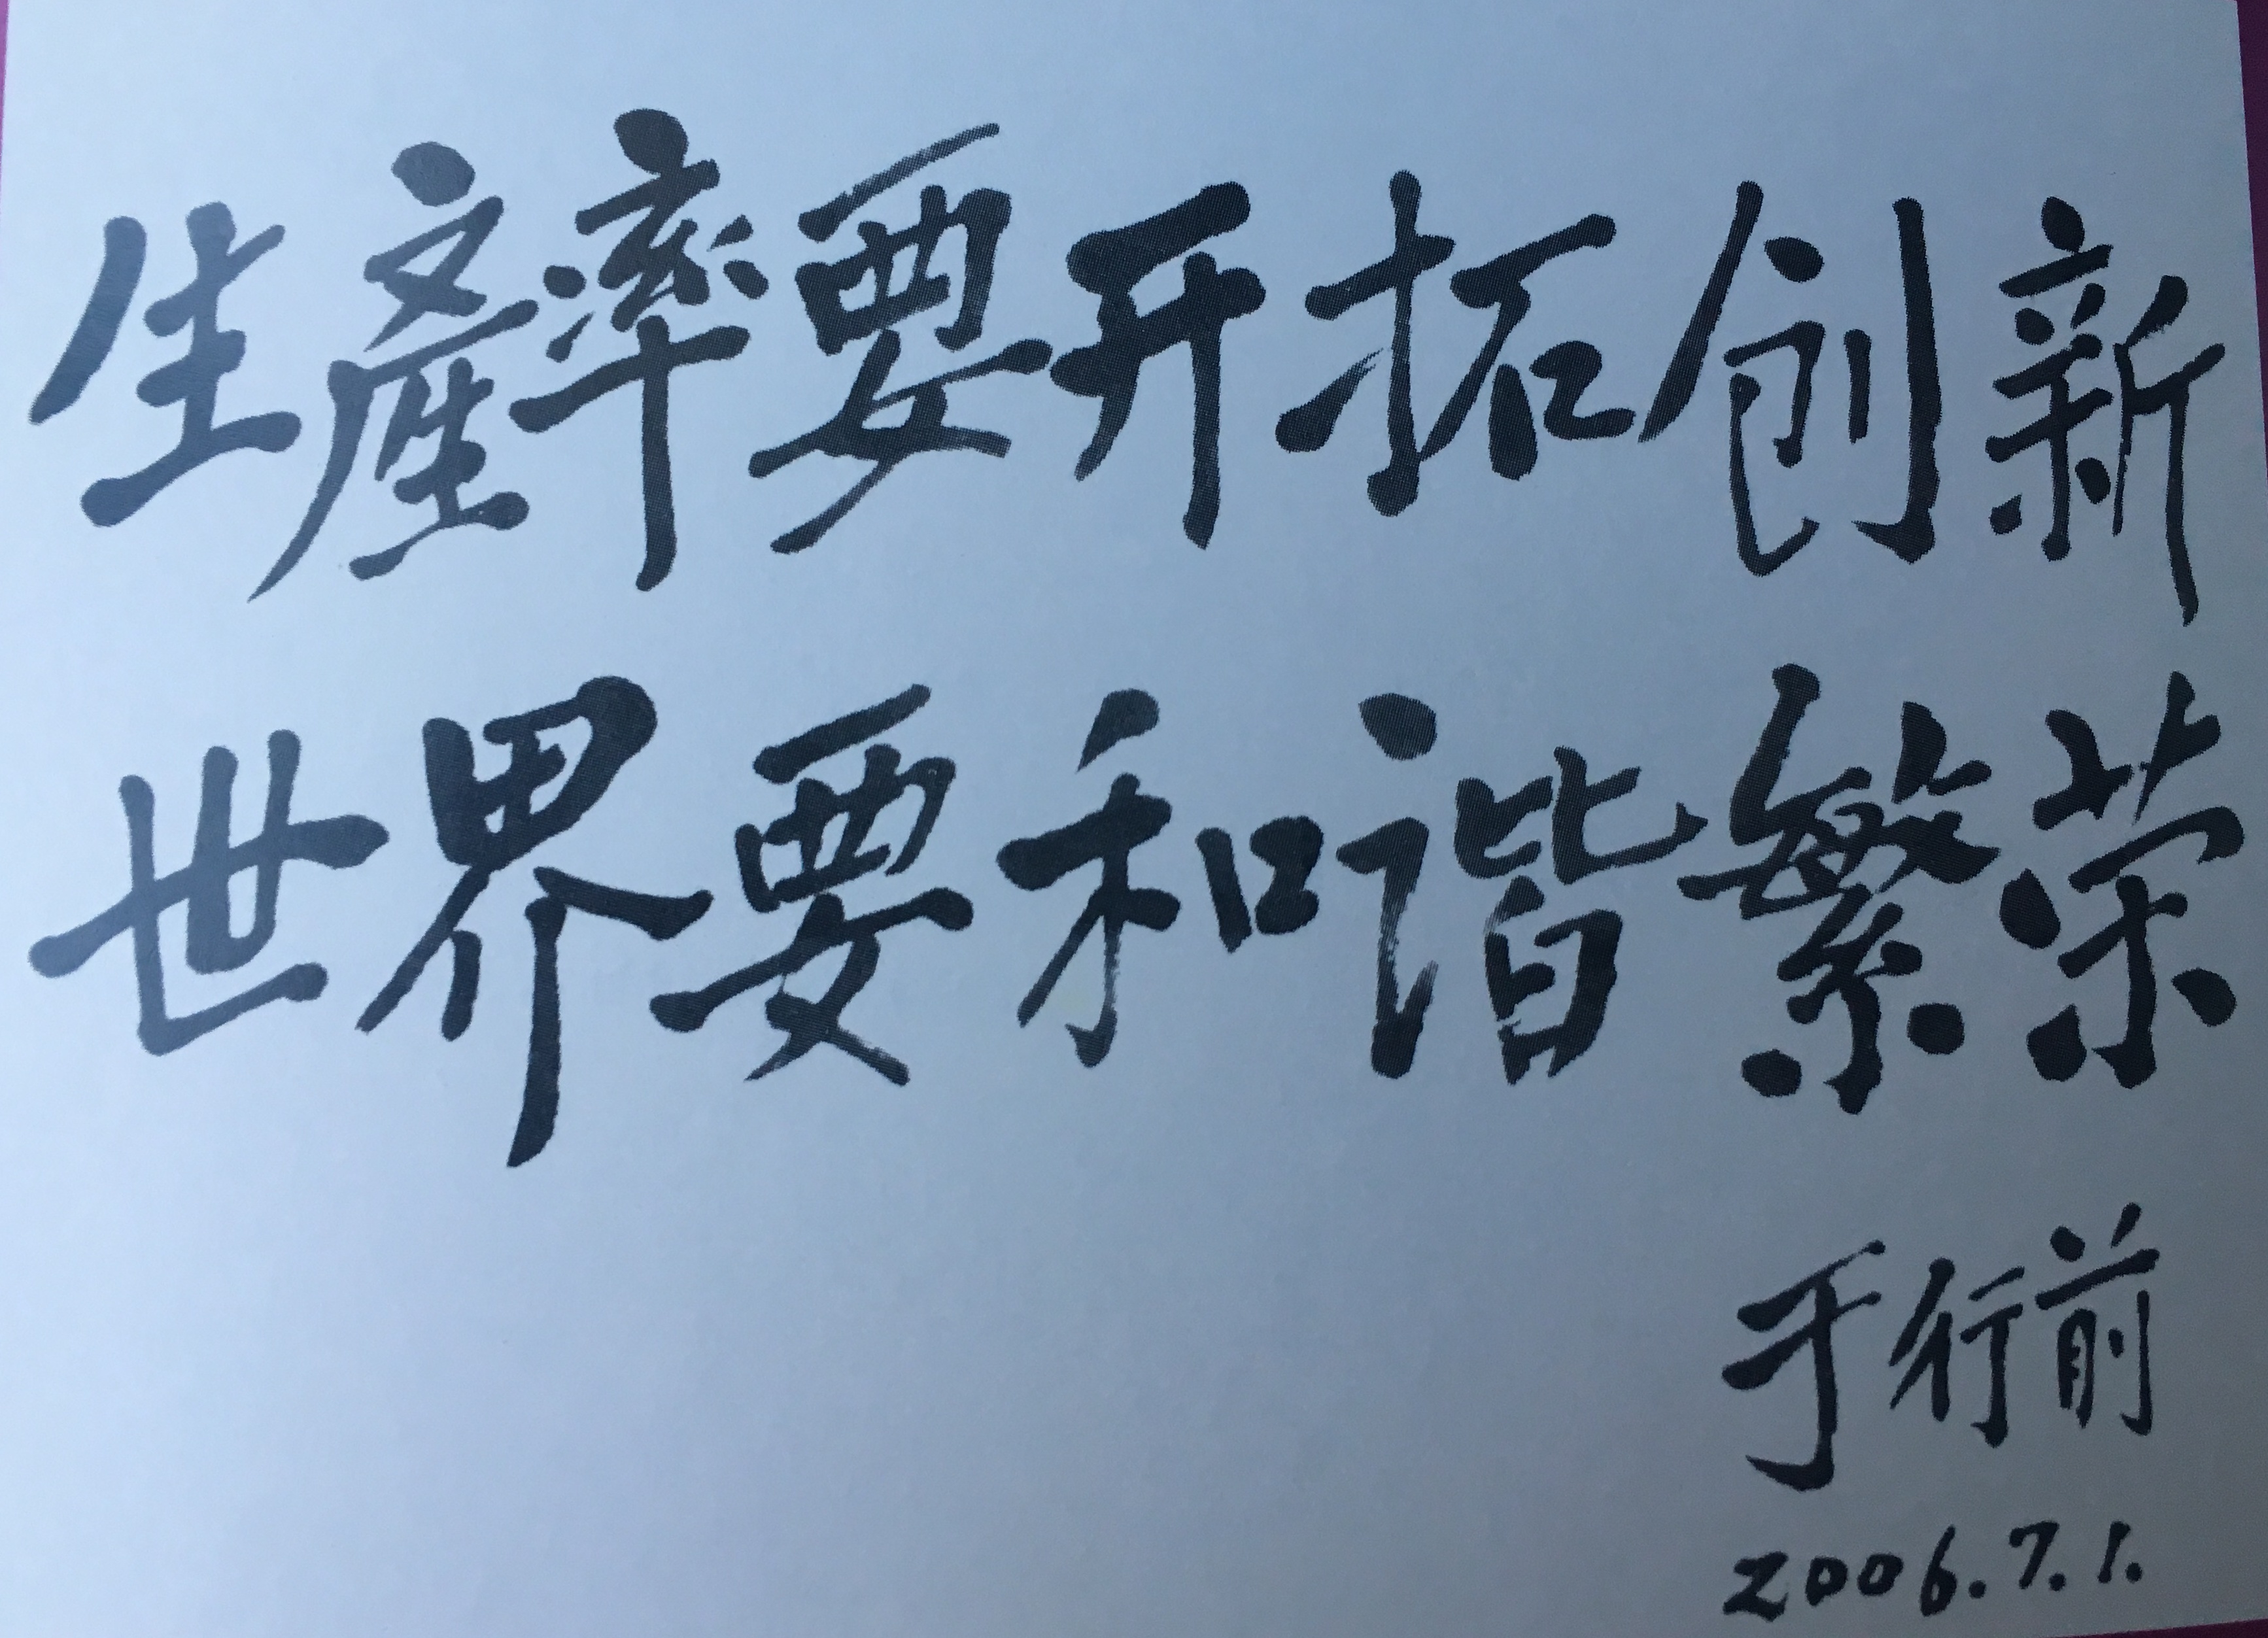 生產率要开拓创新
世界要和谐繁荣
于行前
2006.7.1.